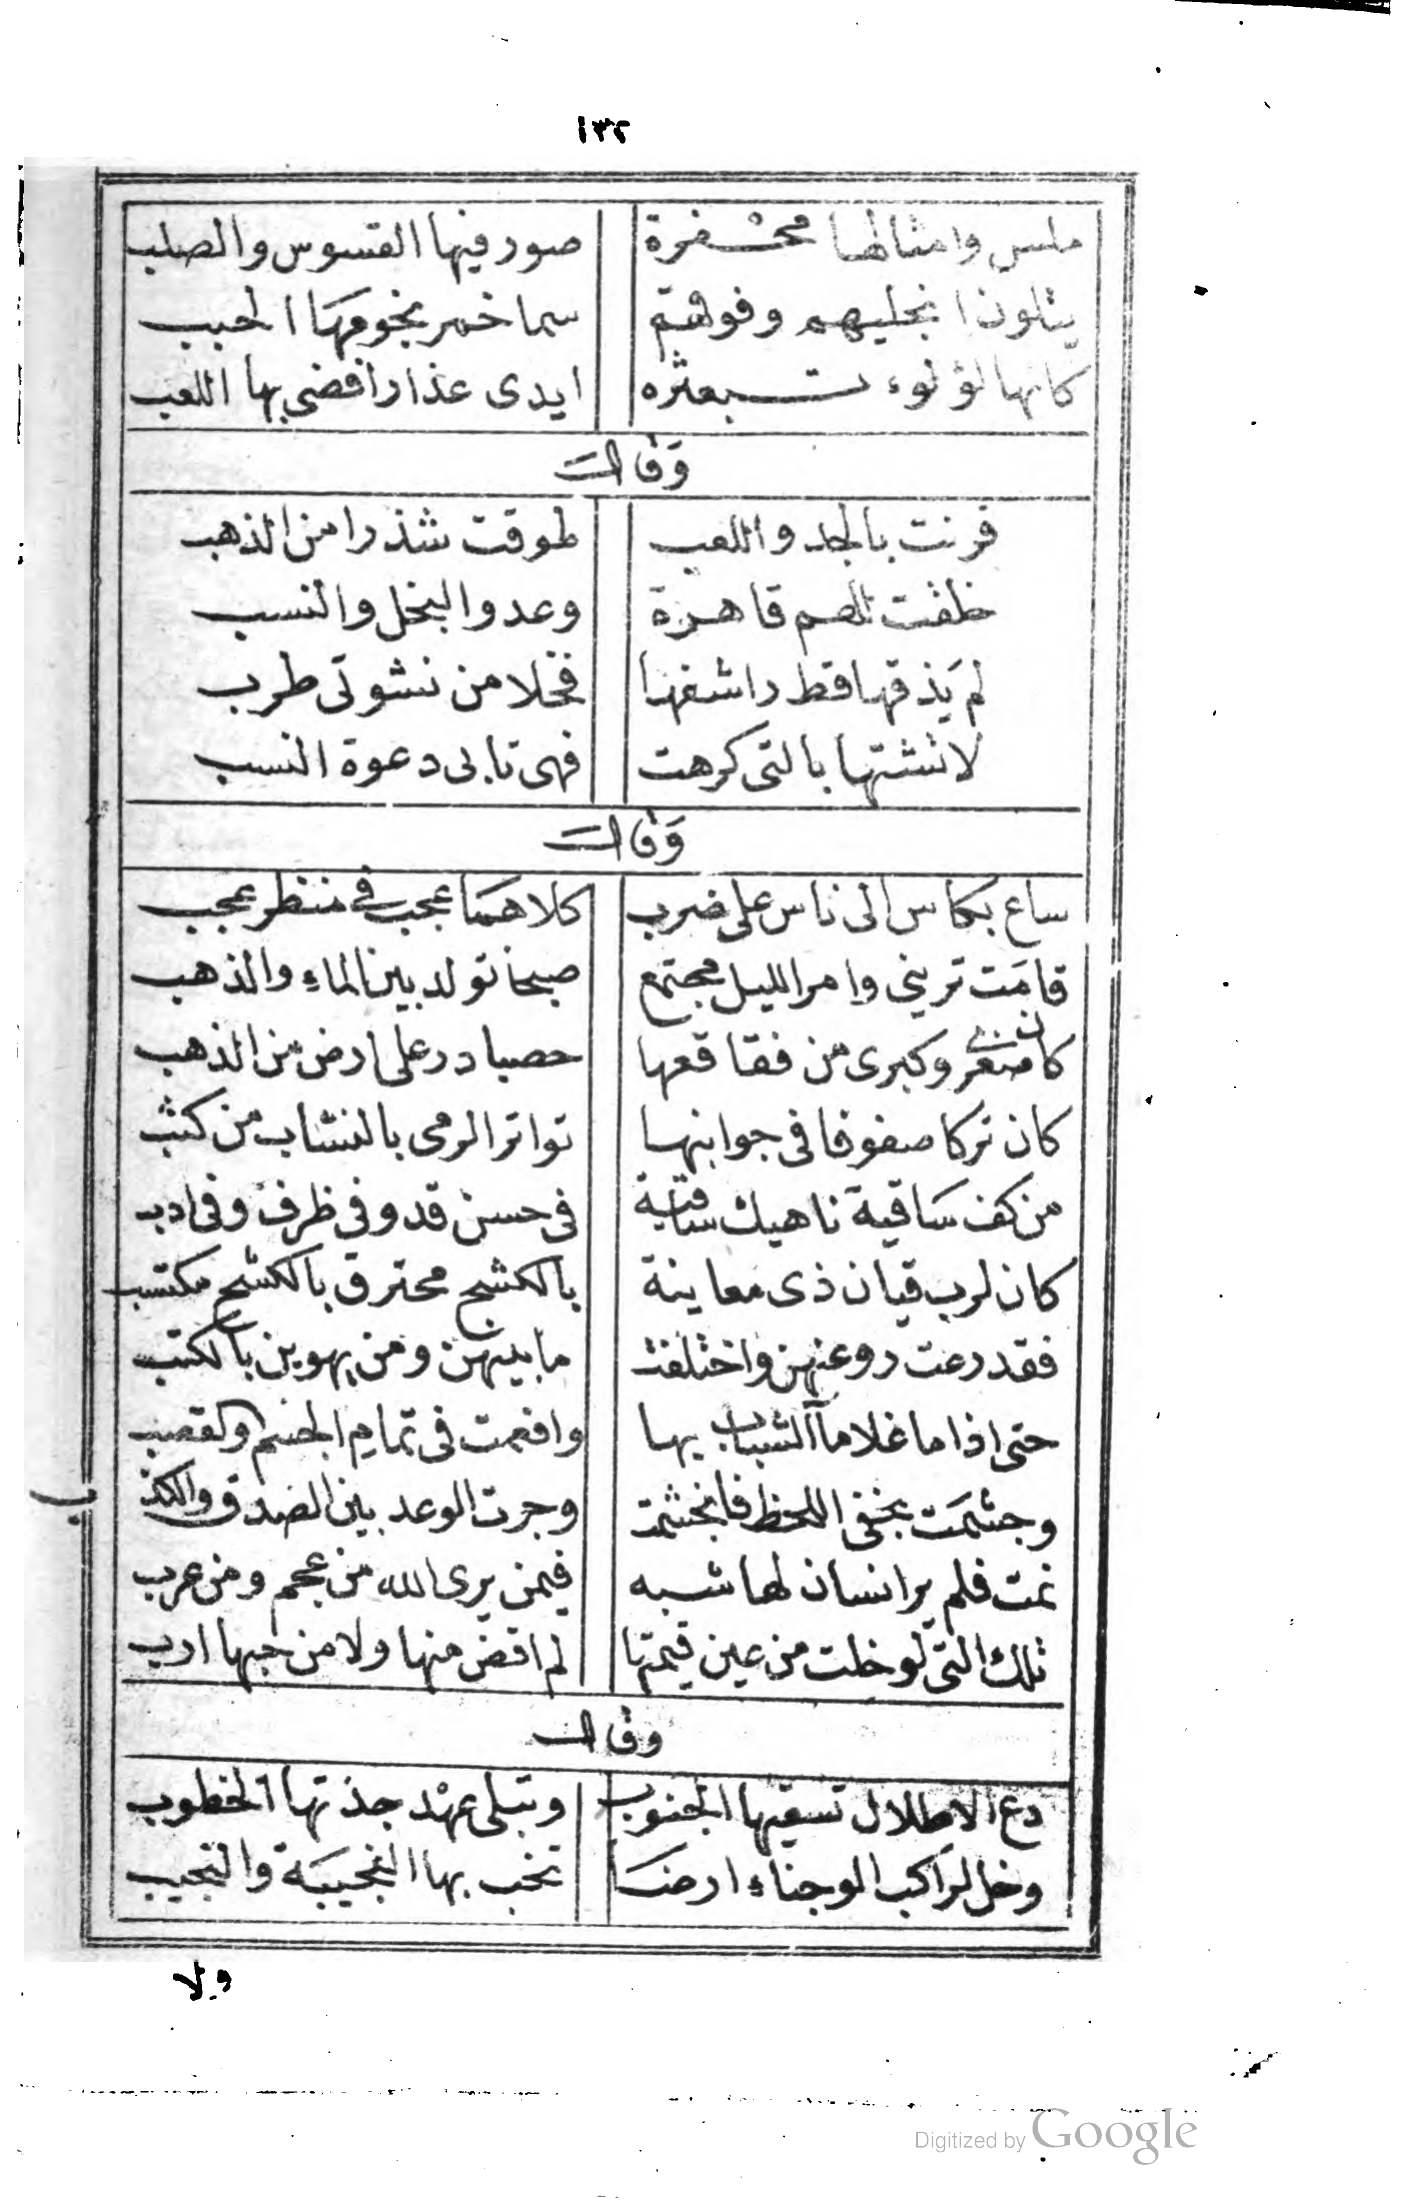 ١٣٢
ملس وامثالها محفرة صور فيها القسوس والصلب
يتلون انجليهم وفوقهم سما خمر نجومها الحبب
كانها لؤلوء تبعثره ايدى عذارا فضى بها اللعب
وقال
قرنت بالجد واللعب طوقت شذرا من الذهب
خلقت للهم قاهرة وعدوا البخل والنسب
لم يذقها قط راشفها فخلا من نشوتى طرب
لاتشنها بالتى كرهت فهى تابى دعوة النسب
وقال
ساع بكاس الى ناس على ضرب كلاهما عجب فى منظر عجب
قامت ترينى وامر الليل مجتمع صبحا تولد بين الماء والذهب
كان صغرى وكبرى من فقاقعها حصبا در على ارض من الذهب
كان تركا صفوفا فى جوانبها تواتر الرمى بالنشاب من كثب
من كف ساقية ناهيك ساقية فى حسن قد وفى ظرف وفى ادب
كان لرب قيان ذى معاينة بالكشح محترق بالكشح مكتسب
فقد رعت روعنهن واختلفت ما بينهن ومن يهوين بالكتب
حتى اذا ما غلا ماآلشباب بها وافعمت فى تمام الجسم والقصب
وجشمت بخفى اللحظ فانجشمت وجرت الوعد بين الصدق والكذب
تمت فلم ير انسان لها شبه فيمن يرى الله من عجم ومن عرب
تلك التى لو خلت من عين قيمتها لم اقض منها ولا من حبها ارب
وقال
دع الاطلال تسقيها الجنوب وتبلى عهد جذتها الخطوب
وخل لراكب الوجناء ارضا تخب بها النجيبة والنجيب
ولا
Digitized by Google